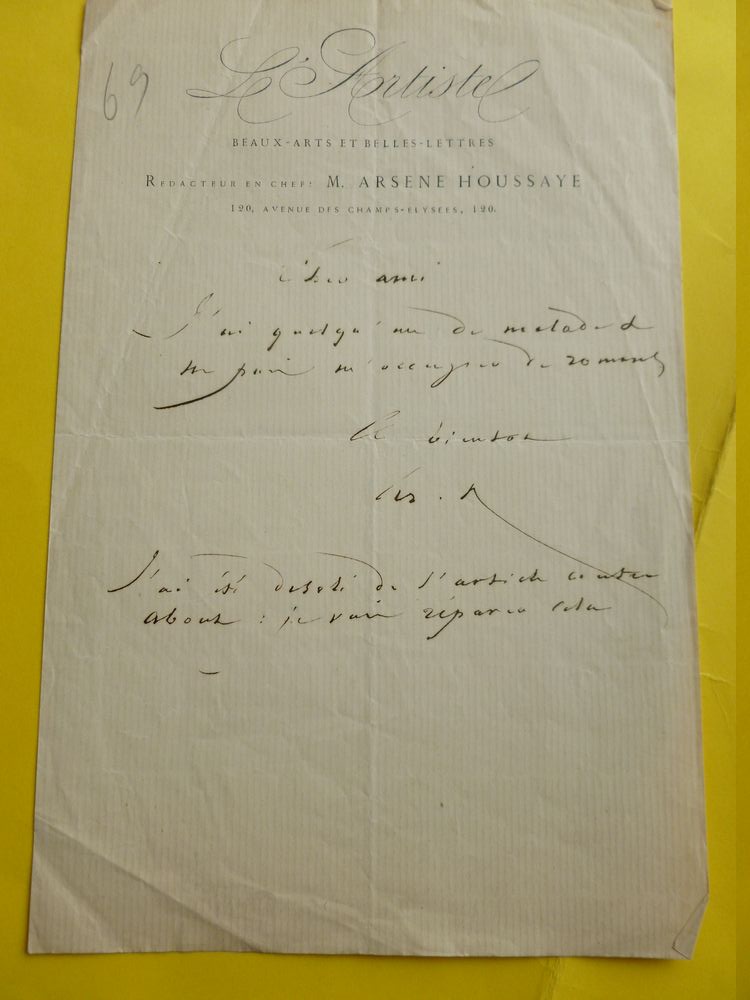 69
L'Artiste
BEAUX-ARTS ET BELLES-LETTRES
REDACTEUR EN CHEF: M. ARSENE HOUSSAYE
120, AVENUE DES CHAMPS-ELYSEES, 120.
Cher ami
J'ai quelqu'un de malade &
ne puis m'occuper de romans
A bientot
Ars. H
J'ai été désolé de l'article contre
about : je vais réparer cela